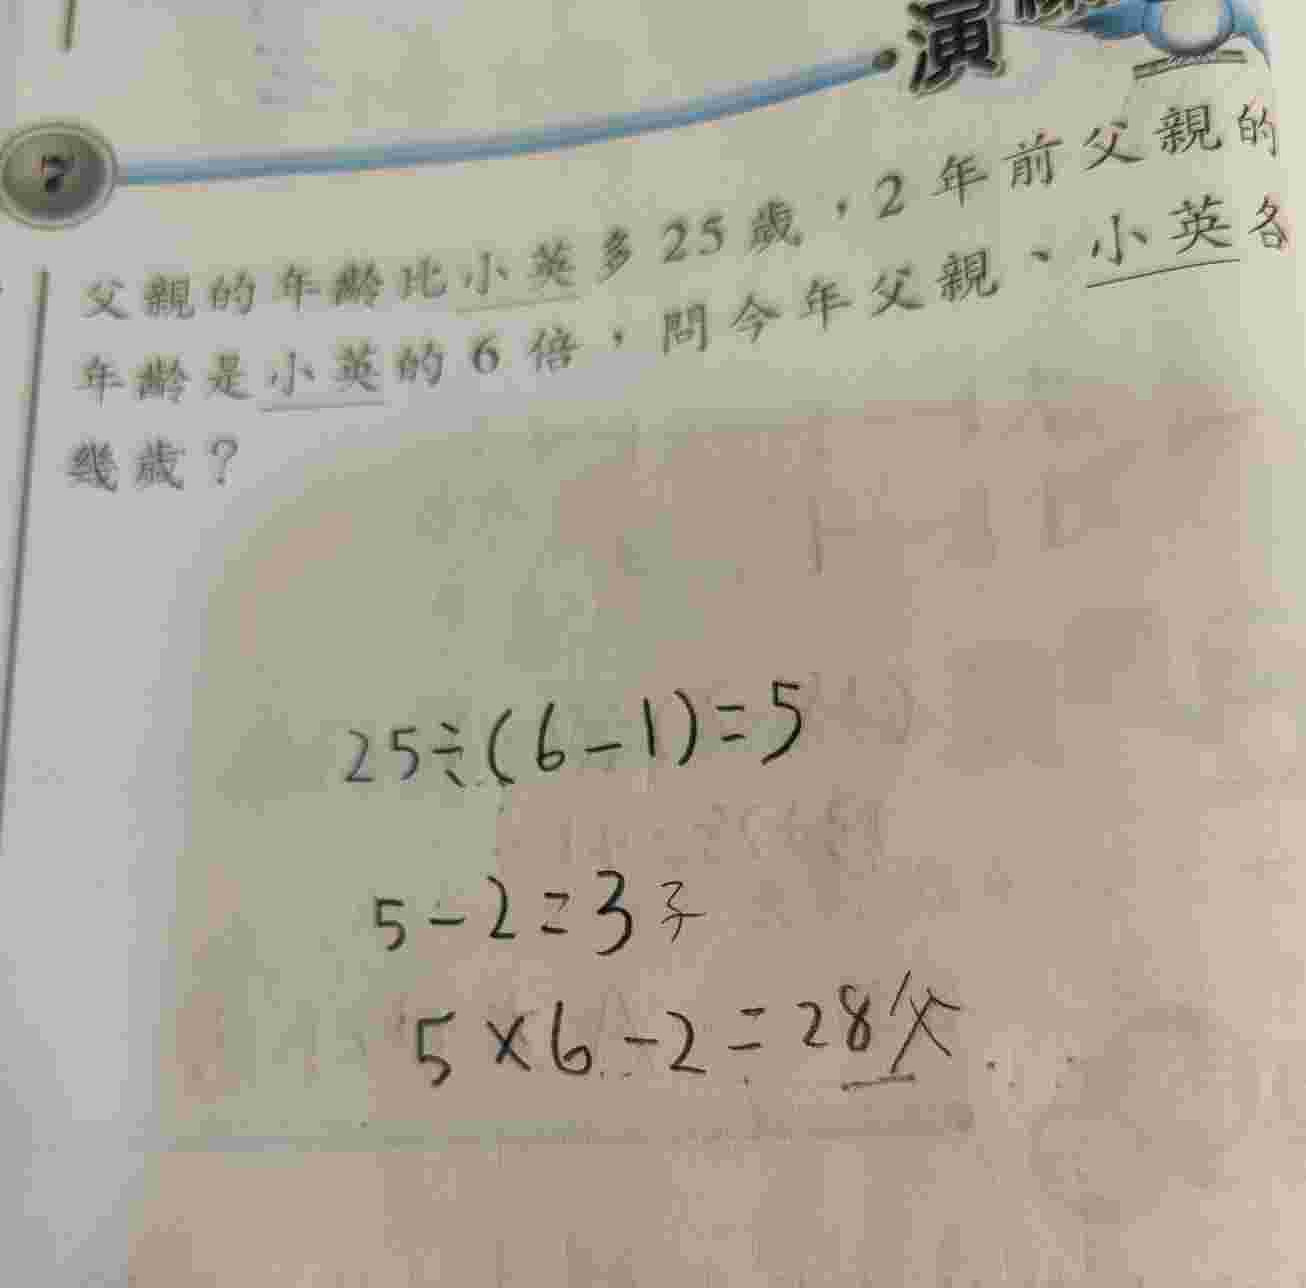 演
7
父親的年齡比小英多25歲，2年前父親的
年齡是小英的6倍，問今年父親、小英各
幾歲？
25÷(6-1)=5
5-2=3子
5×6-2=28父